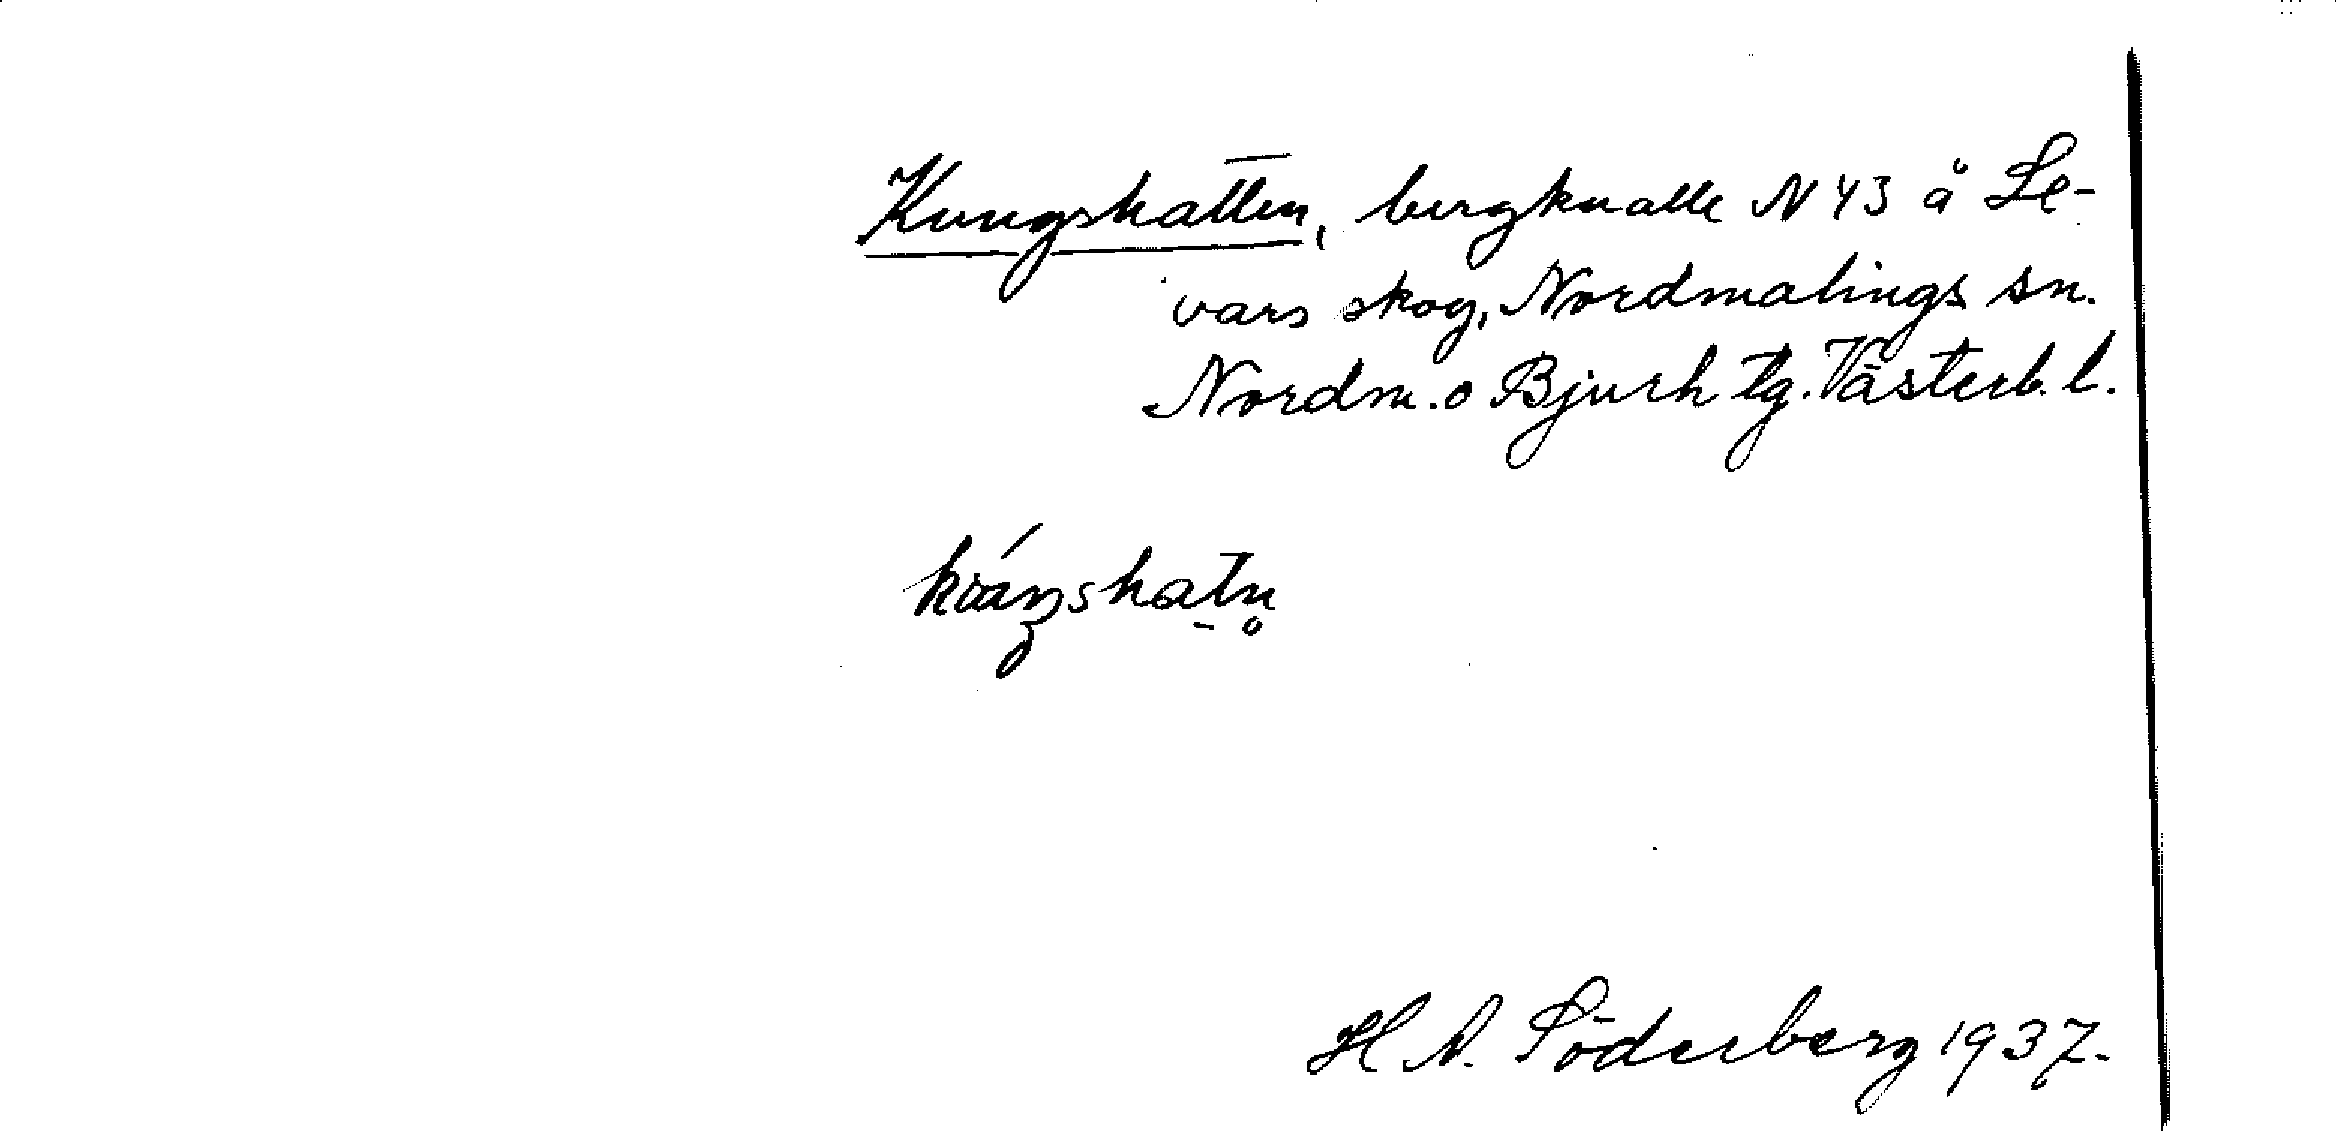 Kungshatten, bergknalle N 43 å Le-
vars skog, Nordmalings sn.
Nordm. o Bjurh tg. Västerb. l.
H A. Söderberg 1937.